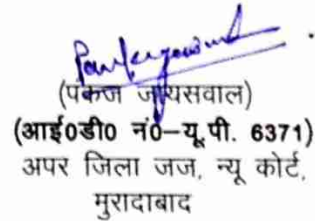 (पंकज जायसवाल)
(आई०डी० नं०–यू.पी. 6371)
अपर जिला जज, न्यू कोर्ट,
मुरादाबाद